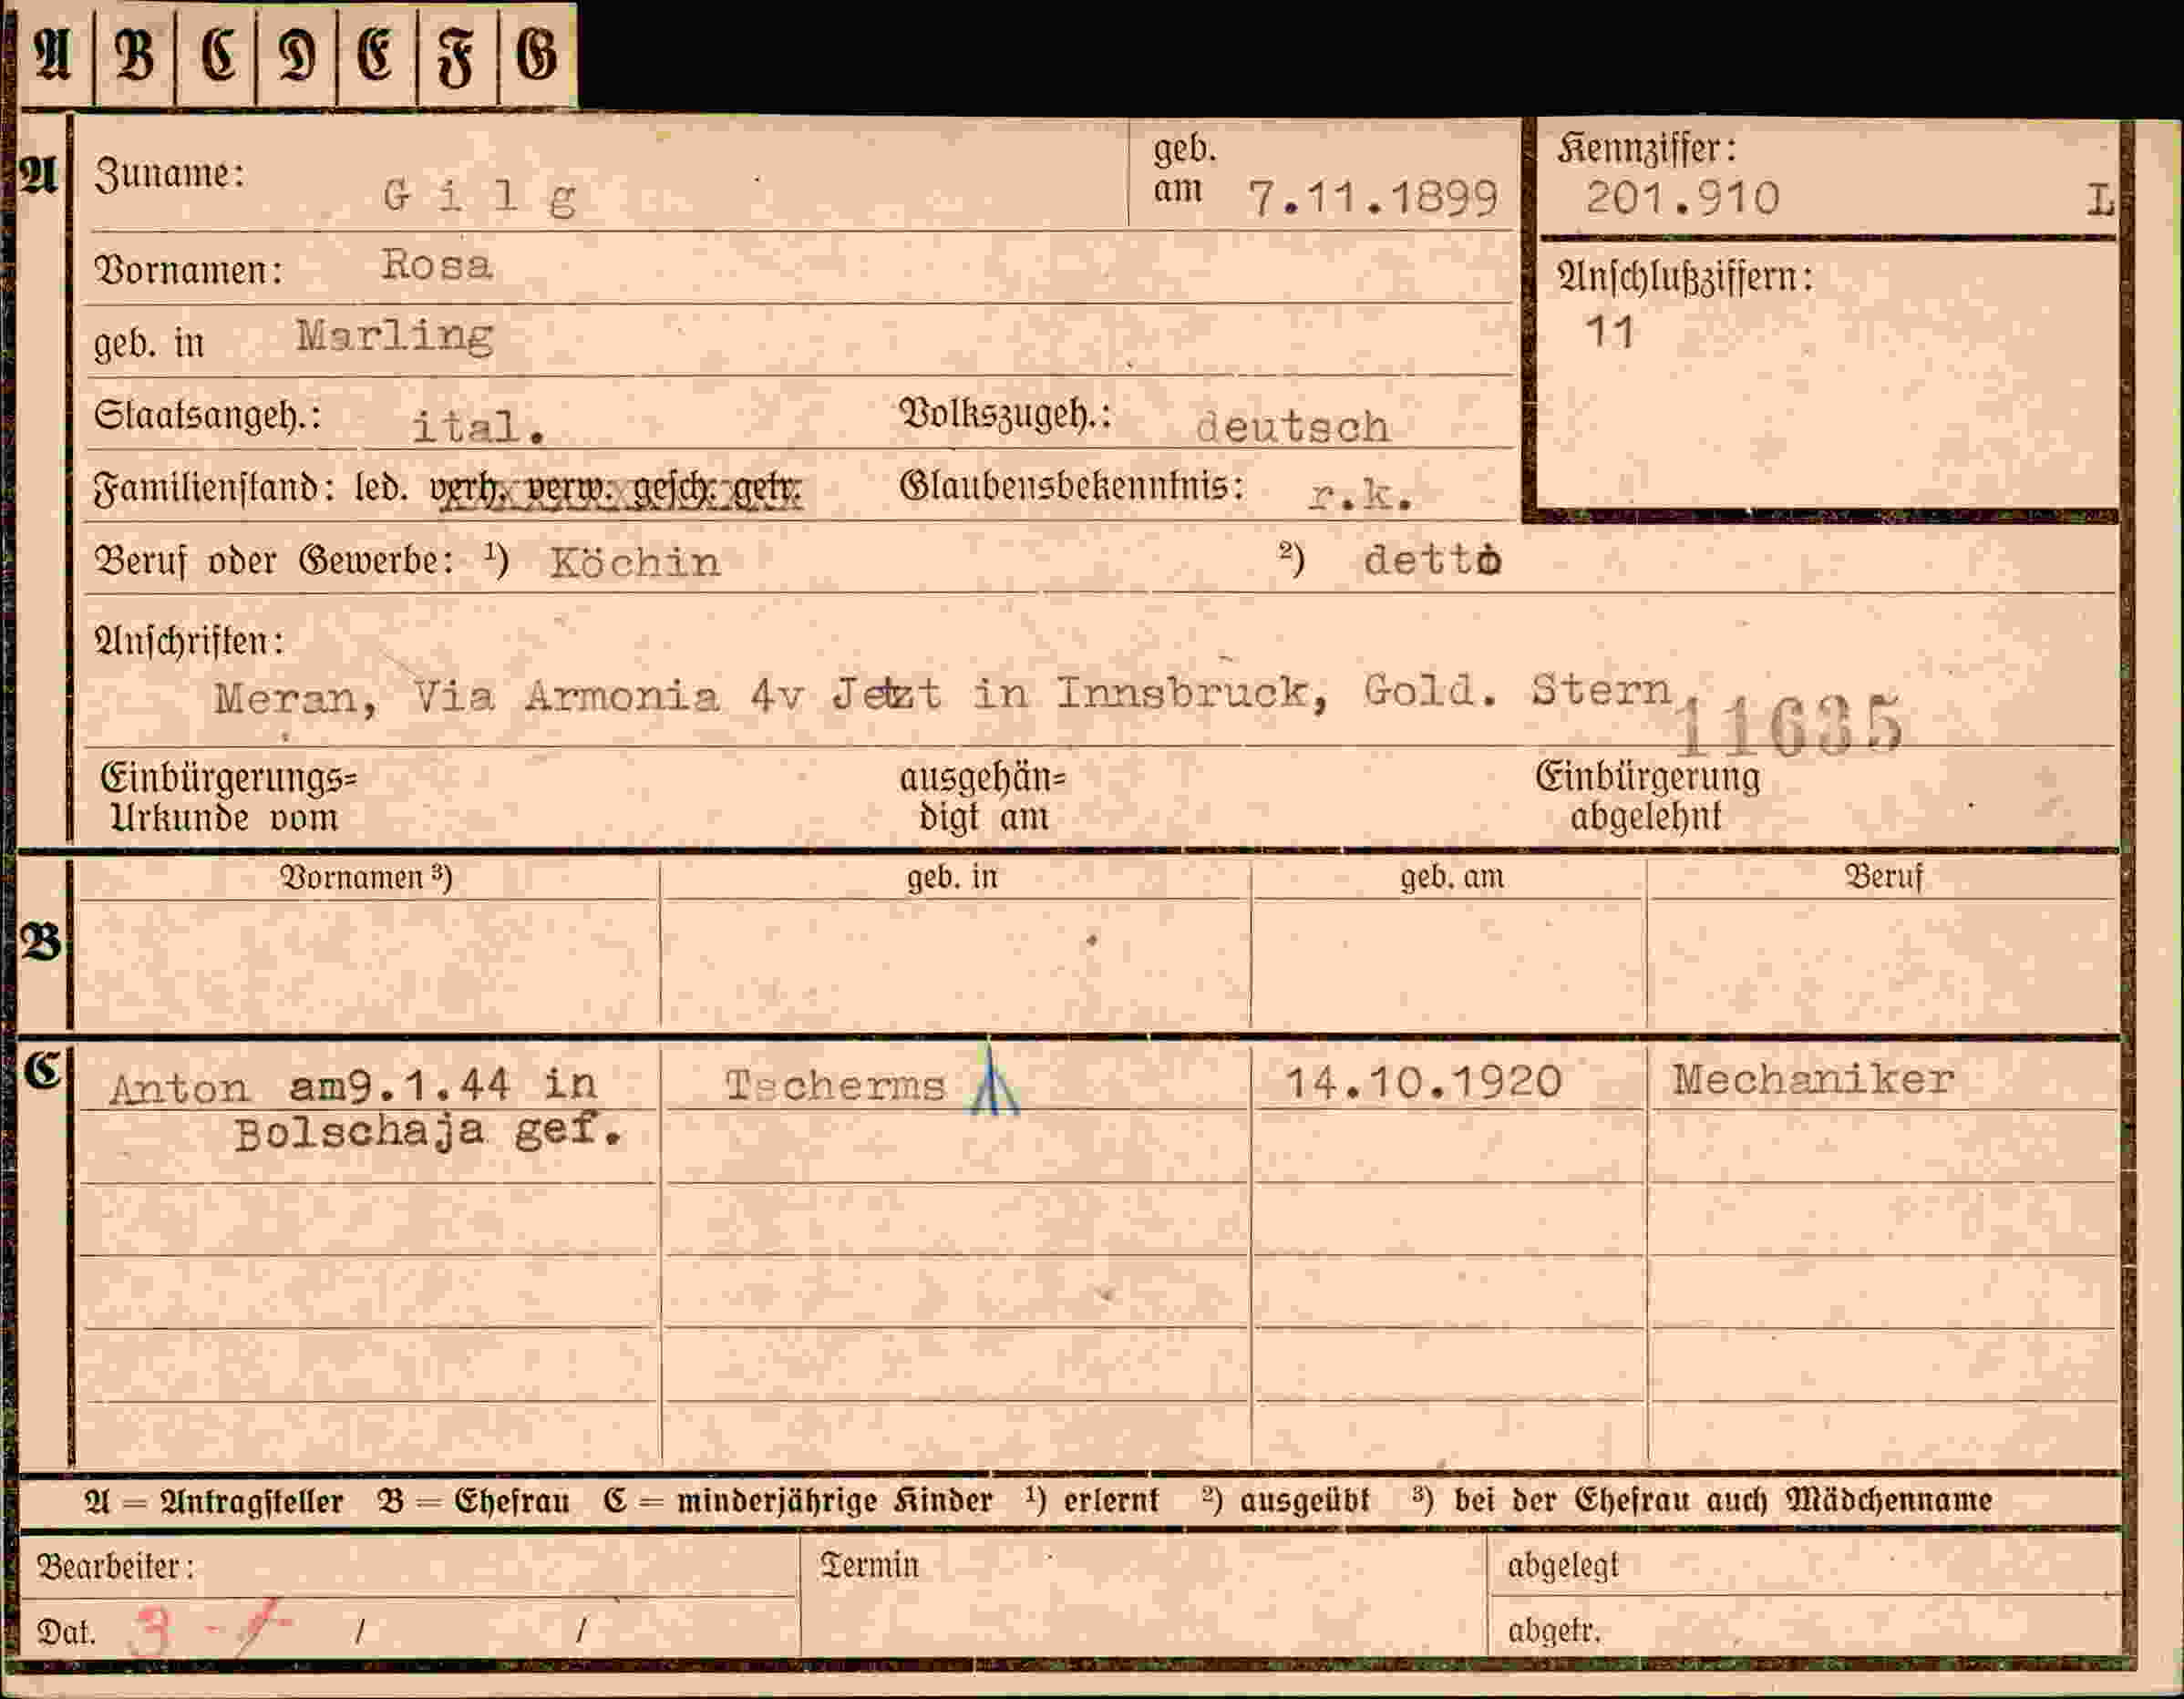 A B C D E F G
A Zuname: Gilg geb. am 7.11.1899 Kennziffer: 201.910 L
Vornamen: Rosa Anschlußziffern: 11
geb. in Marling
Staatsangeh.: ital. Volkszugeh.: deutsch
Familienstand: led. verh. verw. gesch. getr. Glaubensbekenntnis: r.k.
Beruf oder Gewerbe: ¹) Köchin ²) detto
Anschriften:
Meran, Via Armonia 4v Jetzt in Innsbruck, Gold. Stern
11635
Einbürgerungs= Urkunde vom ausgehän= digt am Einbürgerung abgelehnt
Vornamen ³) geb. in geb. am Beruf
B
C Anton am9.1.44 in Tscherms 14.10.1920 Mechaniker
Bolschaja gef.
A = Antragsteller B = Ehefrau C = minderjährige Kinder ¹) erlernt ²) ausgeübt ³) bei der Ehefrau auch Mädchenname
Bearbeiter: Termin abgelegt
Dat. / / abgetr.